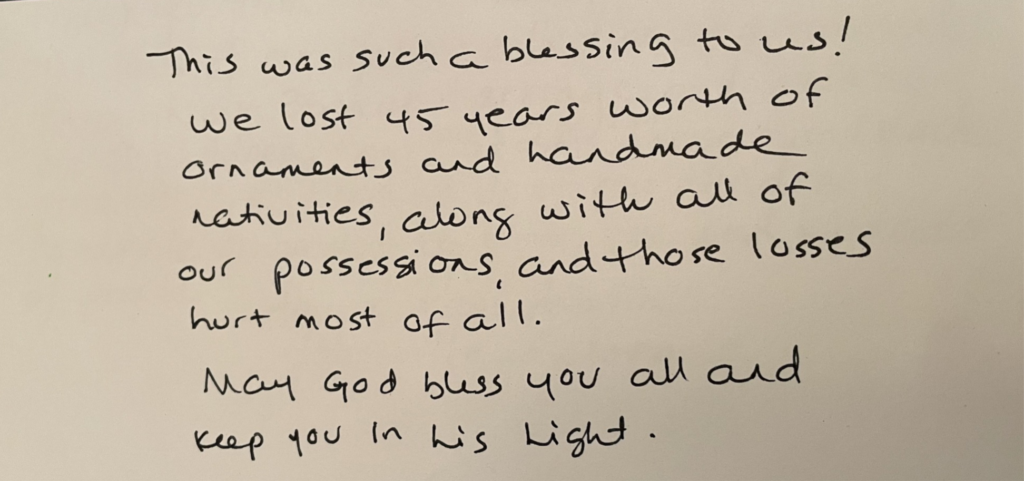 This was such a blessing to us!
We lost 45 years worth of
ornaments and handmade
nativities, along with all of
our possessions, and those losses
hurt most of all.
May God bless you all and
keep you in his Light.